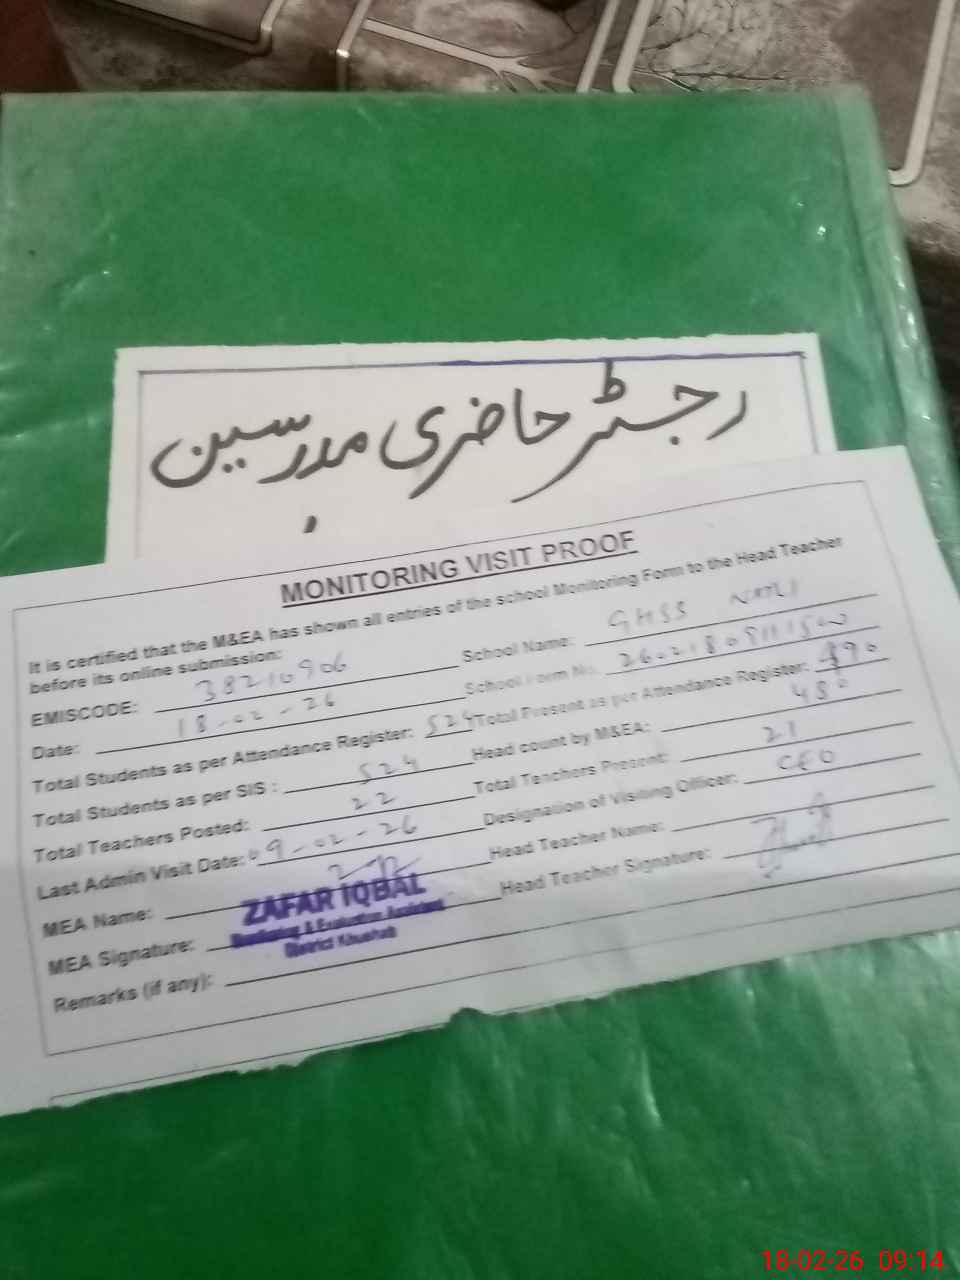 رجسٹر حاضری مدرسین
MONITORING VISIT PROOF
It is certified that the M&EA has shown all entries of the school Monitoring Form to the Head Teacher
before its online submission:
EMISCODE: 38210906 School Name: GHSS NALI
Date: 18-02-26 School Form No.
Total Students as per Attendance Register: 524 Total Present as per Attendance Register: 490
Total Students as per SIS : 524 Head count by M&EA: 480
Total Teachers Posted: 22 Total Teachers Present: 21
Last Admin Visit Date: 09-02-26 Designation of Visiting Officer: CEO
MEA Name: Head Teacher Name:
ZAFAR IQBAL
MEA Signature: Head Teacher Signature:
Monitoring & Evaluation Assistant
District Khushab
Remarks (if any):
18-02-26 09:14